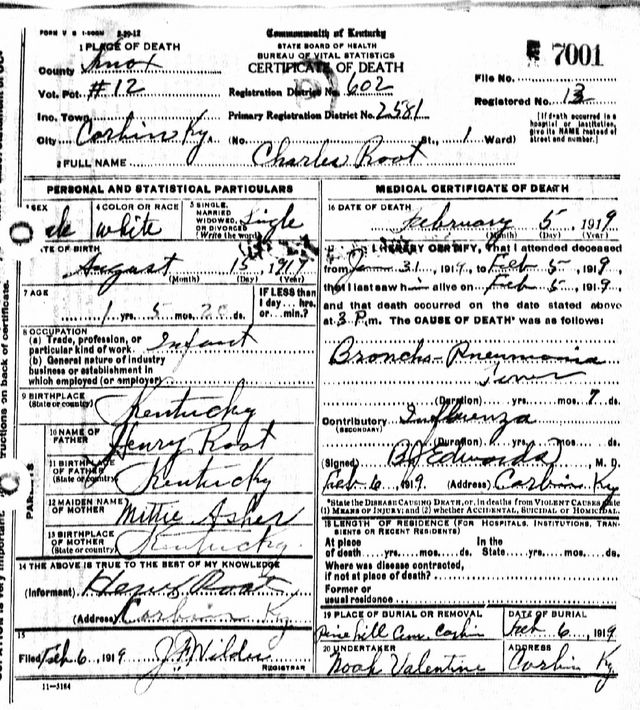 FORM V S 1-500M 2-29-12
Commonwealth of Kentucky
STATE BOARD OF HEALTH
BUREAU OF VITAL STATISTICS
CERTIFICATE OF DEATH
7001
File No.
Registered No. 13
[If death occurred in a
hospital or institution,
give its NAME instead of
street and number.]
1 PLACE OF DEATH
County Knox
Vot. Pct. #12
Registration District No. 602
Inc. Town
Primary Registration District No. 2581
City Corbin Ky. (No. St., 1 Ward)
2 FULL NAME Charles Root
PERSONAL AND STATISTICAL PARTICULARS
SEX
4 COLOR OR RACE White
5 SINGLE, MARRIED WIDOWED, OR DIVORCED (Write the word) Single
DATE OF BIRTH
August 15, 1917
(Month) (Day) (Year)
7 AGE
1 yrs. 5 mos. 20 ds.
IF LESS than
1 day... hrs.
or... min.?
8 OCCUPATION
(a) Trade, profession, or
particular kind of work. Infant
(b) General nature of industry
business or establishment in
which employed (or employer)
9 BIRTHPLACE
(State or country) Kentucky
PARENTS
10 NAME OF
FATHER Henry Root
11 BIRTHPLACE
OF FATHER
(State or country) Kentucky
12 MAIDEN NAME
OF MOTHER Mittie Asher
13 BIRTHPLACE
OF MOTHER
(State or country) Kentucky.
14 THE ABOVE IS TRUE TO THE BEST OF MY KNOWLEDGE
(Informant) Henry Root
(Address) Corbin Ky
15
Filed Feb 6, 1919 J F Wilder
REGISTRAR
11-3184
MEDICAL CERTIFICATE OF DEATH
16 DATE OF DEATH
February 5, 1919
(Month) (Day) (Year)
I HEREBY CERTIFY, That I attended deceased
from Jan 31, 1919, to Feb 5, 1919,
that I last saw him alive on Feb 5, 1919,
and that death occurred on the date stated above
at 3 P.m. The CAUSE OF DEATH* was as follows:
Broncho-Pneumonia
Fever
(Duration) yrs. mos. 7 ds.
Contributory Influenza
(SECONDARY)
(Duration) yrs. mos. ds.
(Signed) B J Edwards, M. D.
Feb 6, 1919 (Address) Corbin Ky
*State the DISEASE CAUSING DEATH, or, in deaths from VIOLENT CAUSES state
(1) MEANS OF INJURY; and (2) whether ACCIDENTAL, SUICIDAL or HOMICIDAL.
18 LENGTH OF RESIDENCE (FOR HOSPITALS, INSTITUTIONS, TRAN-
SIENTS OR RECENT RESIDENTS)
At place In the
of death yrs. mos. ds. State yrs. mos. ds.
Where was disease contracted,
if not at place of death?
Former or
usual residence
19 PLACE OF BURIAL OR REMOVAL
Pine hill Cem. Corbin
DATE OF BURIAL
Feb 6, 1919
20 UNDERTAKER
Noah Valentine
ADDRESS
Corbin Ky.